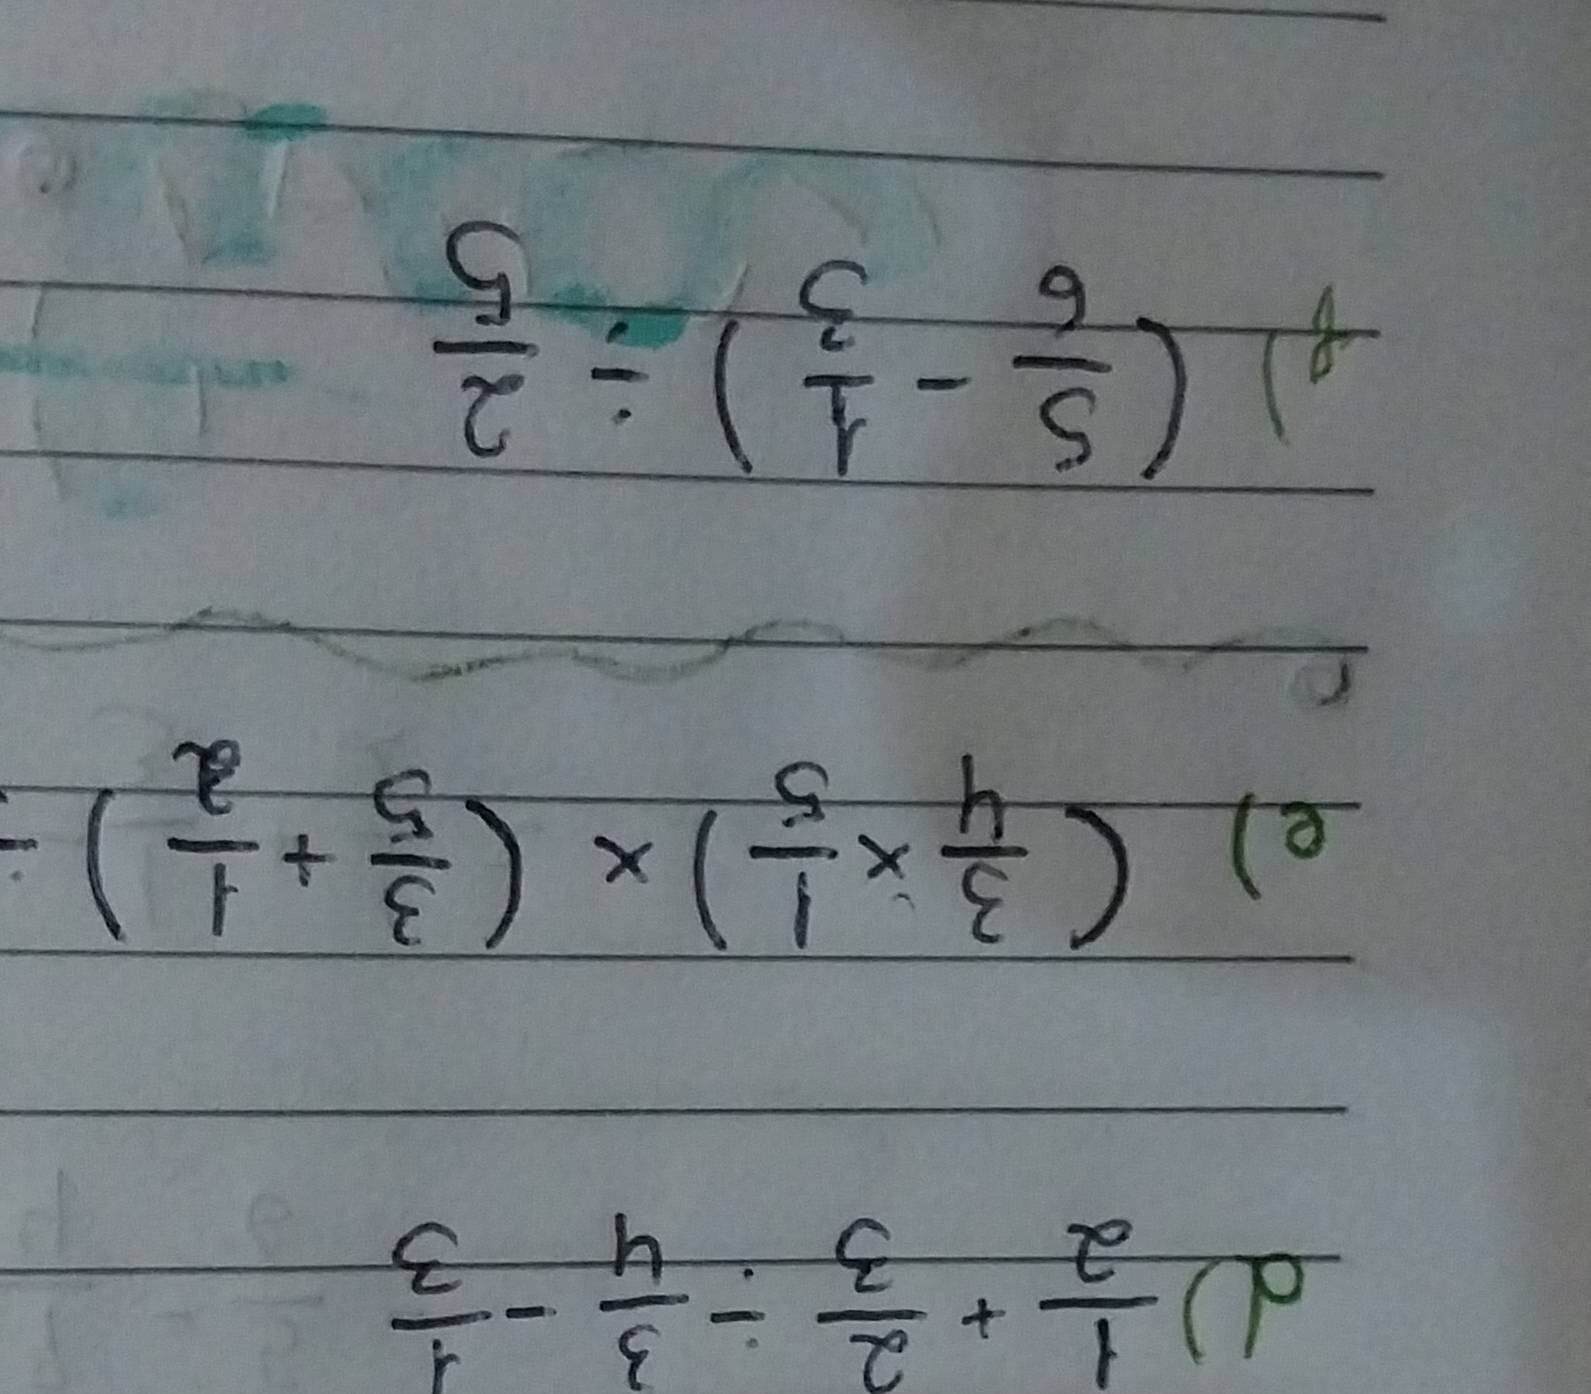 d) 1/2 + 2/3 ÷ 3/4 - 1/3
e) (3/4 × 1/5) × (3/5 + 1/2) -
f) (5/6 - 1/3) ÷ 2/5